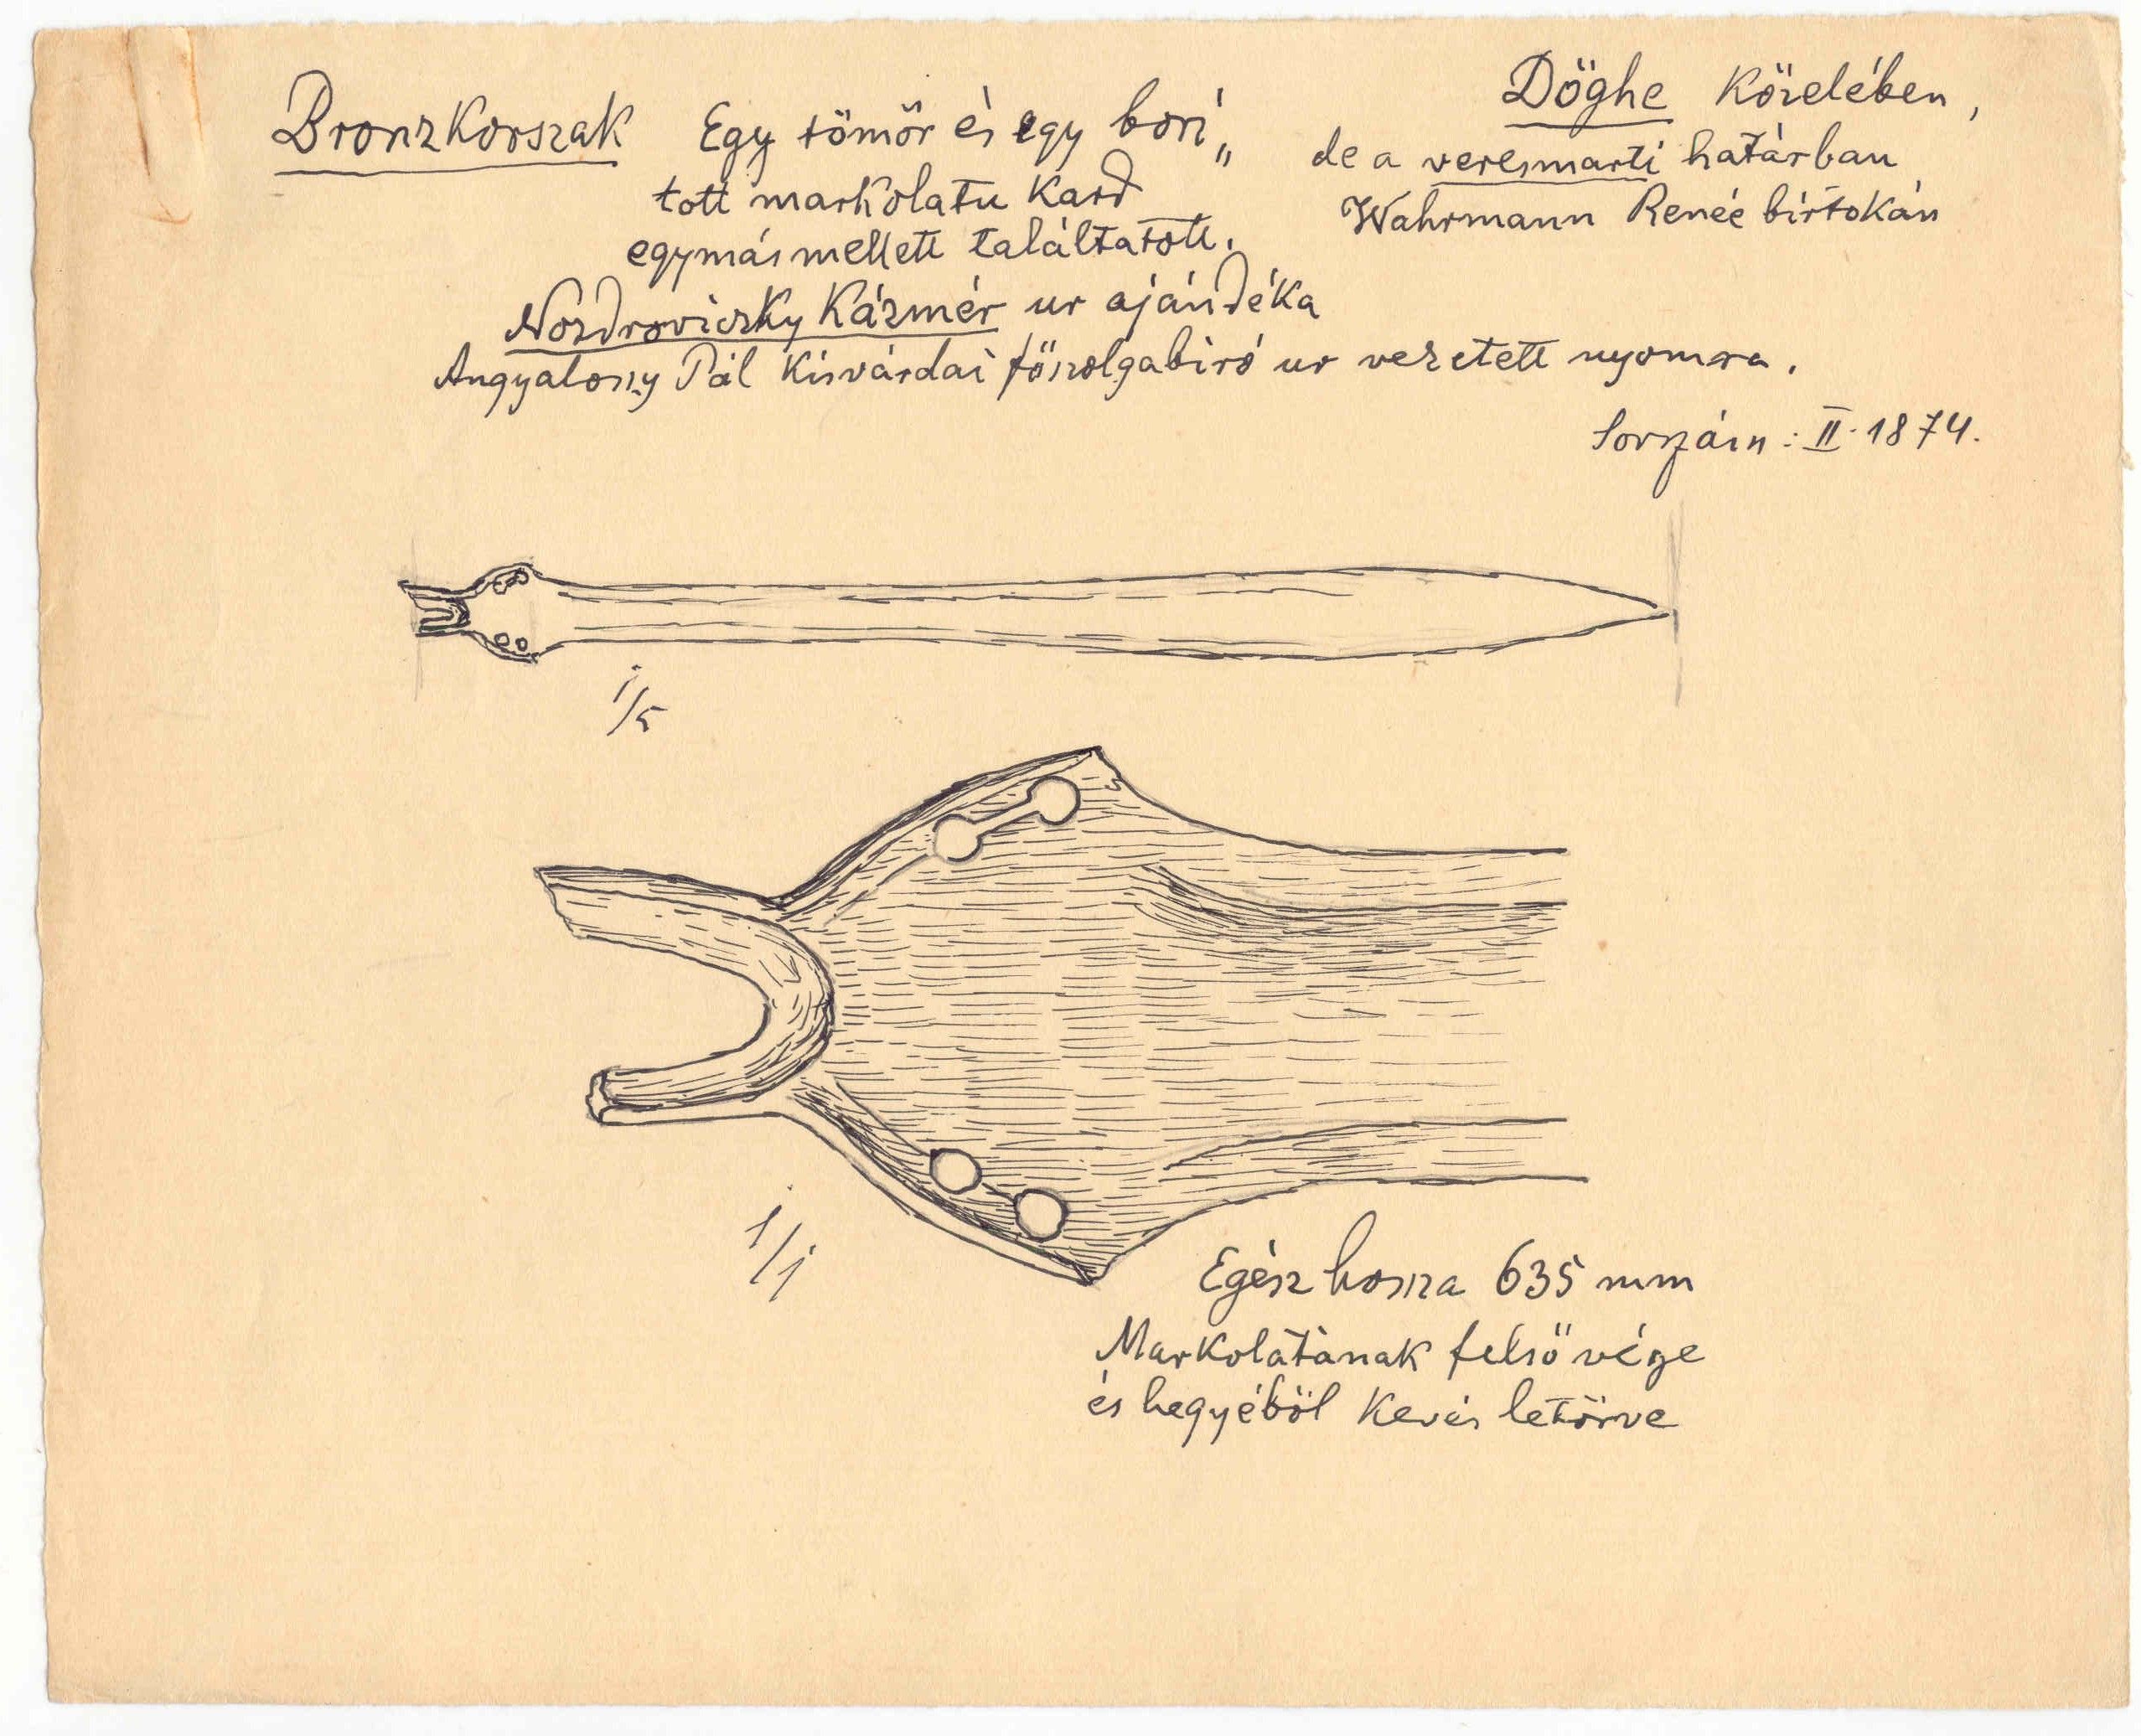 Bronzkorszak
Egy tömör és egy borí„
tott markolatu kard
egymás mellett találtatott.
Döghe közelében,
de a veresmarti határban
Wahrmann Renée birtokán
Nozdroviczky Kázmér ur ajándéka
Angyalossy Pál kisvárdai főszolgabiró ur vezetett nyomra.
Sorszám: II. 1874.
1/5
1/1
Egész hossza 635 mm
Markolatának felső vége
és hegyéböl kevés letörve